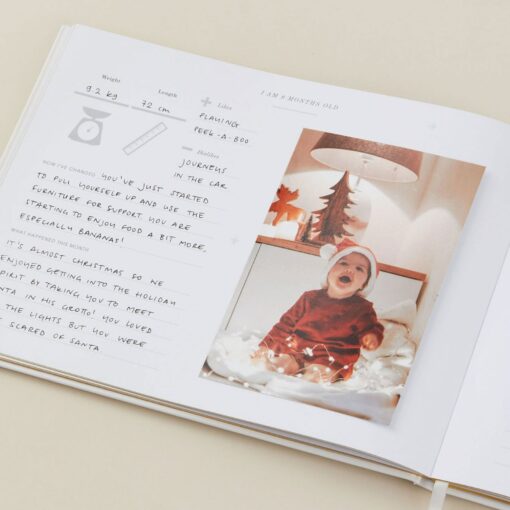 I AM 8 MONTHS OLD
Weight
9.2 kg
Length
72 cm
Likes
PLAYING
PEEK-A-BOO
Dislikes
JOURNEYS
IN THE CAR
HOW I'VE CHANGED YOU'VE JUST STARTED
TO PULL YOURSELF UP AND USE THE
FURNITURE FOR SUPPORT YOU ARE
STARTING TO ENJOY FOOD A BIT MORE,
ESPECIALLY BANANAS!
WHAT HAPPENED THIS MONTH
IT'S ALMOST CHRISTMAS SO WE
ENJOYED GETTING INTO THE HOLIDAY
SPIRIT BY TAKING YOU TO MEET
SANTA IN HIS GROTTO! YOU LOVED
THE LIGHTS BUT YOU WERE
SCARED OF SANTA